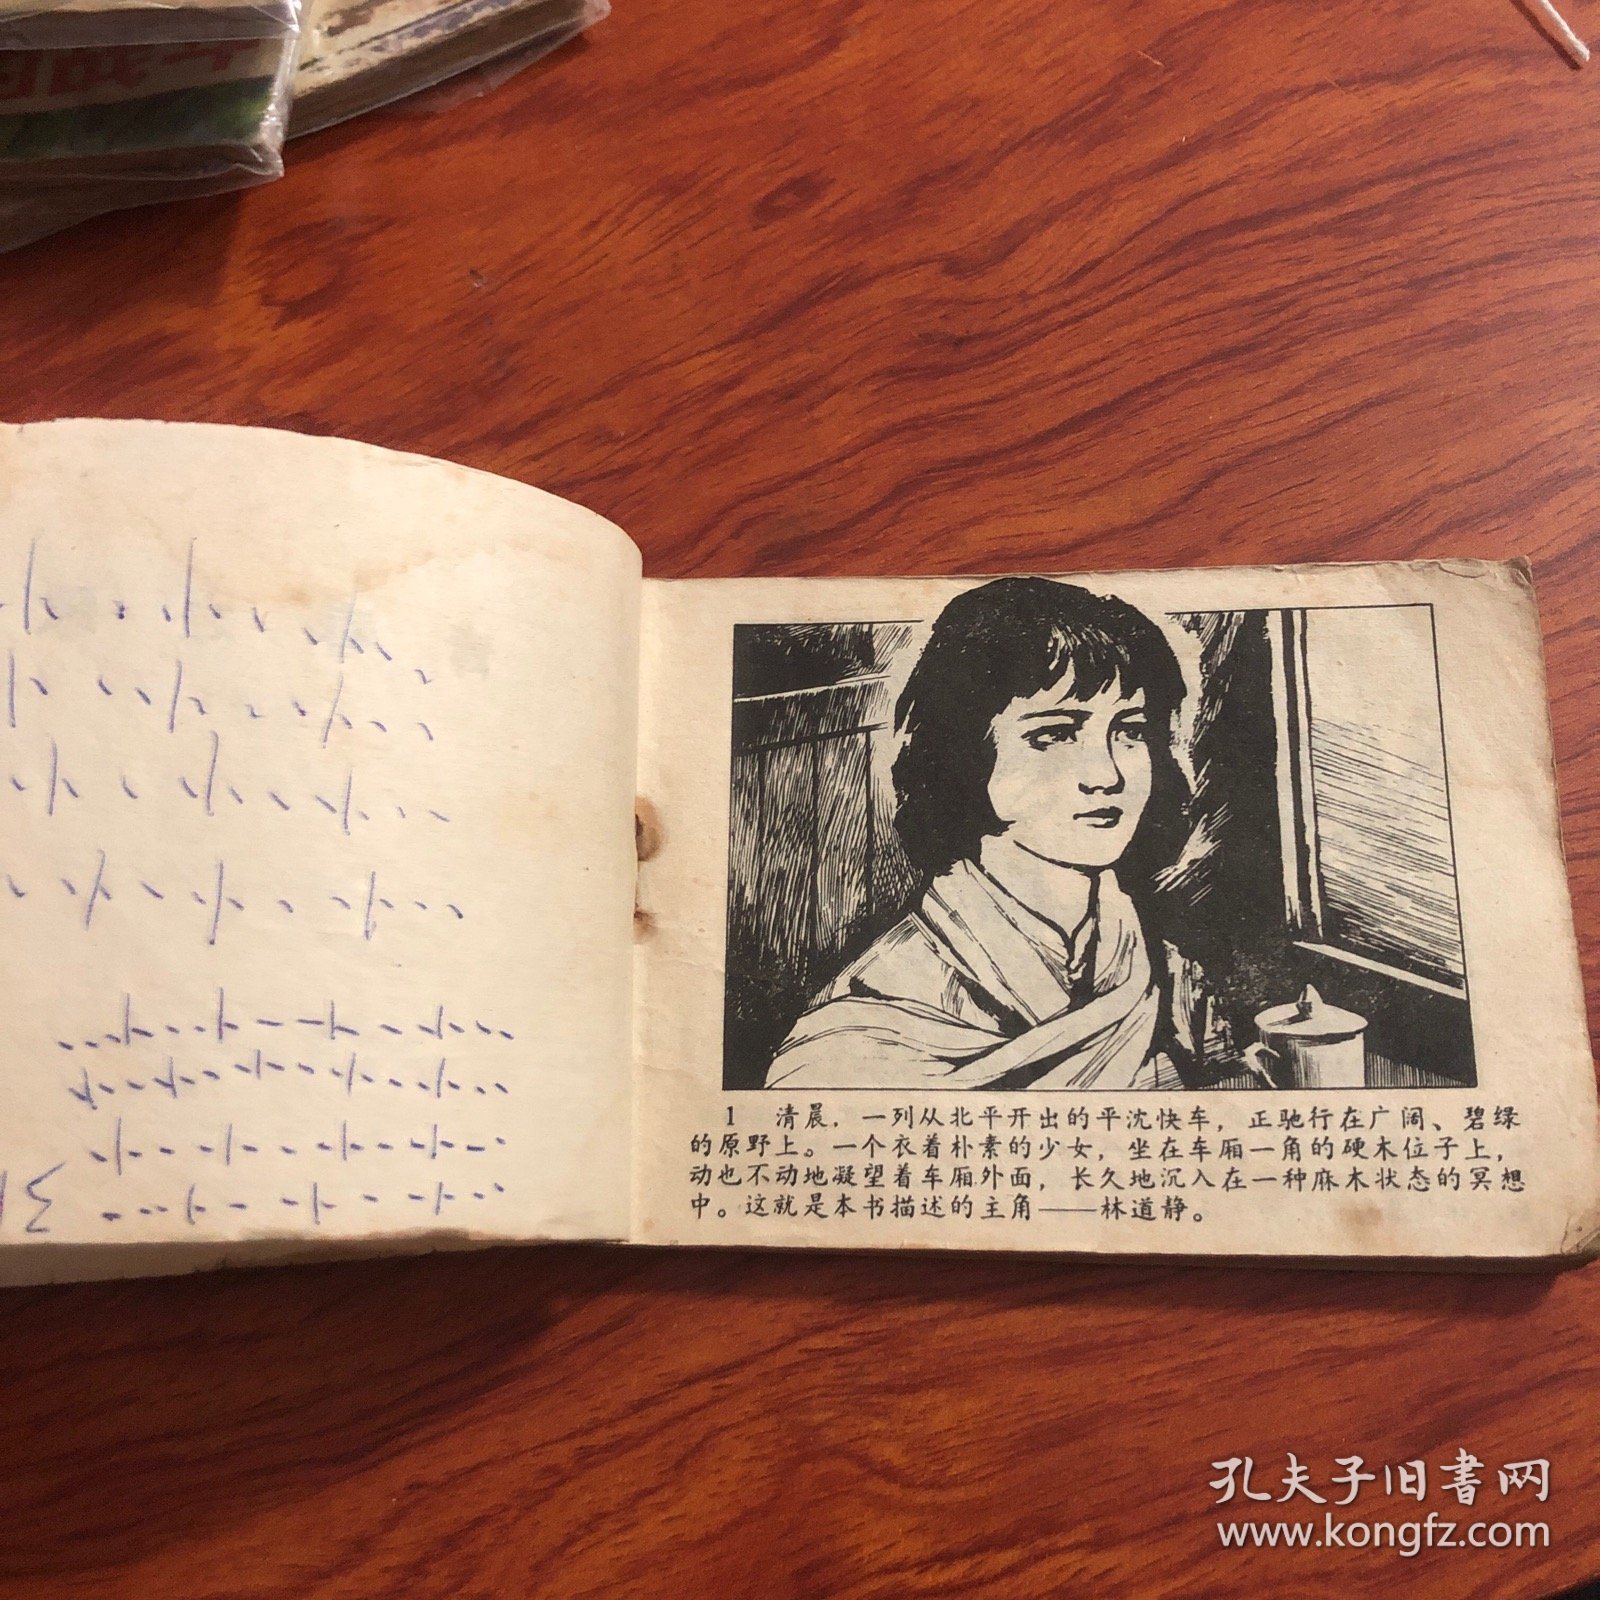 1 清晨，一列从北平开出的平沈快车，正驰行在广阔、碧绿
的原野上。一个衣着朴素的少女，坐在车厢一角的硬木位子上，
动也不动地凝望着车厢外面，长久地沉入在一种麻木状态的冥想
中。这就是本书描述的主角——林道静。
孔夫子旧书网
www.kongfz.com